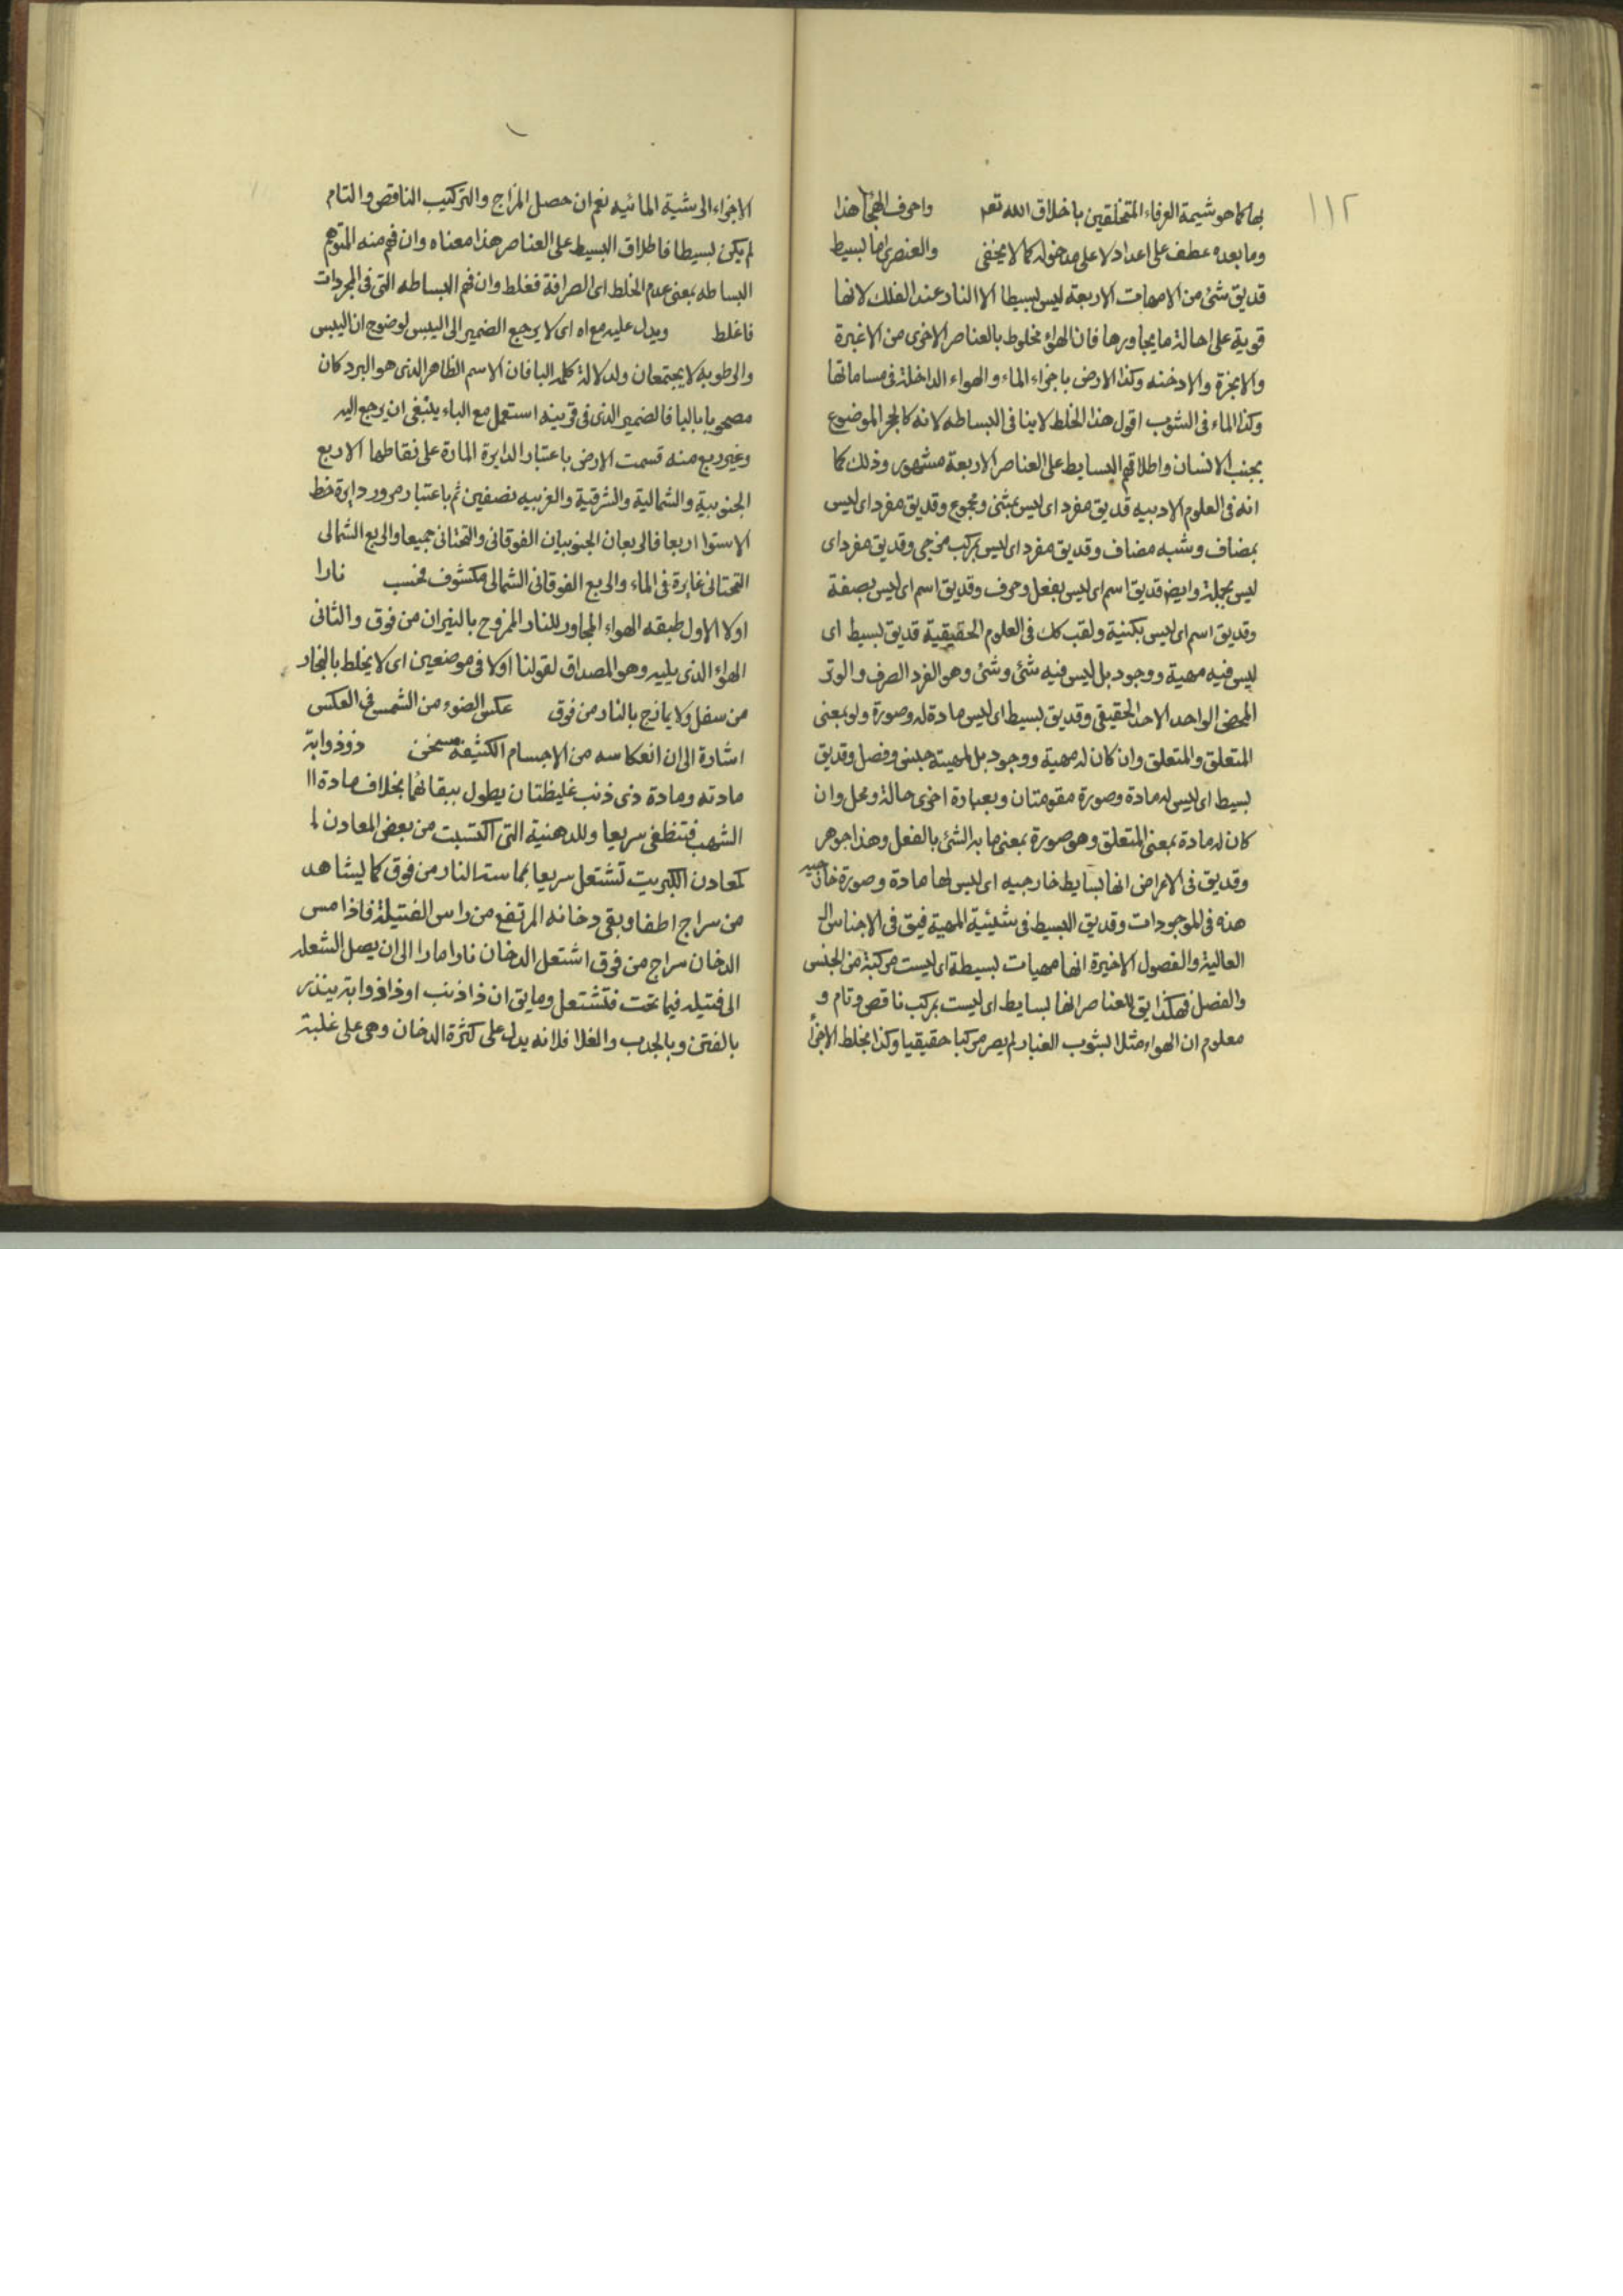 ١١٢
بها كما هو شيمة العرفاء المتخلقين باخلاق الله تعم واحرف الهجا هذا
وما بعده عطف على اعداد لا على مدخوله كما لا يخفى والعنصري اما بسيط
قد يق شئ من الامهات الاربعة ليس ببسيط الا النار عند الفلك لانها
قوية على احالة ما يجاورها فان الهواء مخلوط بالعناصر الاخرى من الاغبرة
والابخرة والادخنه وكذا الارض باجزاء الماء والهواء الداخلة فى مساماتها
وكذا الماء فى الشوب اقول هذا الخلط لا ينافى البساطه لانه كالحجر الموضوع
بجنب الانسان واطلاقهم البسايط على العناصر الاربعة مشهور وذلك كما
انه فى العلوم الادبيه قد يق مفرد اى ليس بمثنى ومجموع وقد يق مفرد اى ليس
بمضاف وشبه مضاف وقد يق مفرد اى ليس بمركب مزجى وقد يق مفرد اى
ليس بجملة وايض قد يق اسم اى ليس بفعل وحرف وقد يق اسم اى ليس بصفة
وقد يق اسم اى ليس بكنية ولقب كك فى العلوم الحقيقية قد يق بسيط اى
ليس فيه مهية ووجود بل ليس فيه شئ وشئ وهو الفرد الصرف والوتر
المحض الواحد الاحد الحقيقى وقد يق بسيط اى ليس مادة له وصورة ولو بمعنى
المتعلق والمتعلق وان كان له مهية ووجود بل لمهيته جنس وفصل وقد يق
بسيط اى ليس له مادة وصورة مقومتان وبعبارة اخرى حالة ومحل وان
كان له مادة بمعنى المتعلق وهو صورة بمعنى ما به الشئ بالفعل وهذا جوهر
وقد يق فى الاعراض انها بسايط خارجيه اى ليس لها مادة وصورة خارجيه
هذه فى الموجودات وقد يق البسيط فى شيئية المهية فيق فى الاجناس
العالية والفصول الاخيرة انها مهيات بسيطة اى ليست مركبة من الجنس
والفصل فهكذا يق للعناصر انها بسايط اى ليست بمركب ناقص وتام و
معلوم ان الهواء مثلا بشوب الغبار لم يصر مركبا حقيقيا وكذا بخلط الاجزأ
الاجزاء الى شية المائيه نعم ان حصل المزاج والتركيب الناقص والتام
لم يكن بسيطا فاطلاق البسيط على العناصر هذا معناه وان فهم منه المتوهم
البساطه بمعنى عدم الخلط اى الصرافة فغلط وان فهم البساطه التى فى المجردات
فاغلط ويدل عليه مع اه اى لا يرجع الضمير الى اليبس لوضوح ان اليبس
والرطوبه لا يجتمعان ولدلالة كلمه البا فان الاسم الظاهر الذى هو البرد كان
مصحوبا بالبا فالضمير الذى فى قرينه استعمل مع الباء ينبغى ان يرجع اليه
وغير ربع منه قسمت الارض باعتبار الدايرة المارة على نقاطها الاربع
الجنوبية والشمالية والشرقية والغربيه نصفين ثم باعتبار مرور دايرة خط
الاستوا اربعا فالربعان الجنوبيان الفوقانى والتحتانى جميعا والربع الشمالى
التحتانى غايرة فى الماء والربع الفوقانى الشمالى مكشوف فحسب نارا
اولا الاول طبقه الهواء المجاور للنار الممزوج بالنيران من فوق والثانى
الهواء الذى يليه وهو المصداق لقولنا اولا فى موضعين اى لا يخلط بالبخار
من سفل ولا يمازج بالنار من فوق عكس الضوء من الشمس فى العكس
اشارة الى ان انعكاسه من الاجسام الكثيفه مسخن ذو ذوابة
مادته ومادة ذى ذنب غليظتان يطول بقائهما بخلاف مادة
الشهب فتنطفى سريعا وللدهنية التى اكتسبت من بعض المعادن
كمعادن الكبريت تشتعل سريعا بمماسته النار من فوق كما يشاهد
من سراج اطفا وبقى دخانه المرتفع من راس الفتيلة فاذا مس
الدخان سراج من فوق اشتعل الدخان نارا مارا الى ان يصل الشعله
الى فتيله فيما تحت فتشتعل وما يق ان ذا ذنب او ذا ذوابة ينذر
بالفتن وبالجدب والغلا فلانه يدل على كثرة الدخان وهى على غلبة